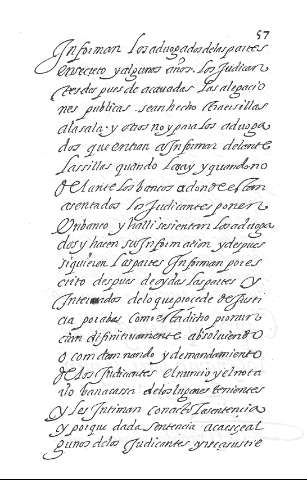 57
Informan los aduogados delas partes
en secreto y algunos años. los Judican
tes dos pues de acauadas las alegacio
nes publicas. sean hecho traer sillas
ala sala. y otros no y para los aduoga
dos que entran a Informar delante
Las sillas quando Las ay y quando no
delante los bancos adonde estan
asentados los Judicantes ponen
Un banco y halli se sientan los aduoga
dos y hacen su Informacion y despues
si quieren las partes Informan por es
crito despues de oydas las partes y
Informados delo que procede de Justi
cia por abas como esta dicho pronun
cian difinitiuamente absoluiendo
o comdemnando y de mandamiento
de los Judicantes el nuncio y el nota
rio van a casa de los lugares tenientes
y Les Intiman con actos La sentencia
y porque dada sentencia acaece al
gunos de los Judicantes y